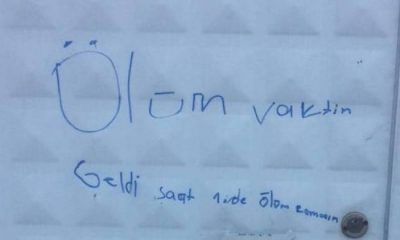 Ölüm vaktin
Geldi saat 1'de ölüm zamanın